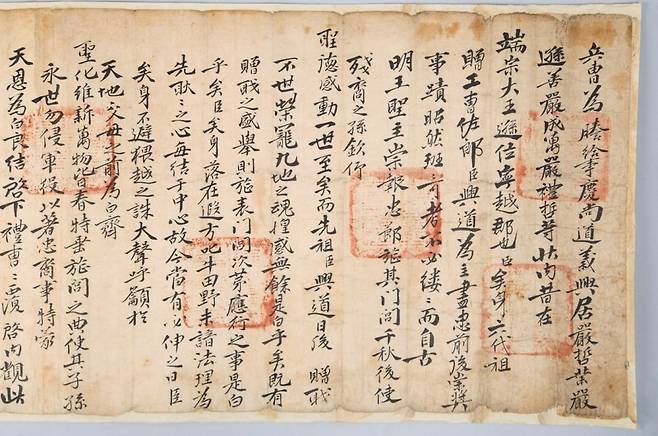 兵曹為謄給事慶尙道義興居嚴哲業嚴
遜善嚴成萬嚴禮哲等狀內昔在
端宗大王遜位寧越郡也臣矣身六代祖
贈工曹佐郎臣興道為主盡忠前後崇獎
事蹟昭然班〃可考者不必縷〃而自古
明王聖主崇報忠節旌其門閭千秋後使
殘裔之孫欽仰
聖德感動一世至矣而先祖臣興道日後 贈職
不世榮寵九地之魂惶感無餘是白乎矣既有
贈職之盛舉則旌表門閭次第應行之事是白
乎矣臣矣身落在遐方 田野未諳法理為
先耿〃之心每結于中心故今當有必伸之日臣
矣身不避猥越之誅大聲呼籲於
天地父母之前為白齊
聖化維新萬物皆春特垂旌閭之典使其子孫
永世勿侵軍役以著忠裔事特蒙
天恩為白良結啓下禮曹〃覆啓內觀此